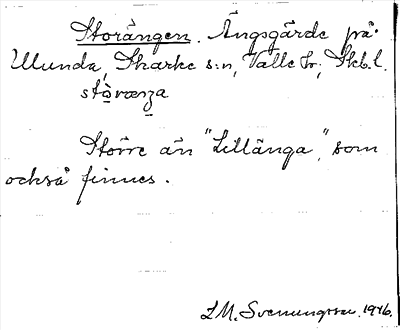 Storängen. Ängsgärde på
Ulunda, Skarke s:n, Valle hr; Skb.l.
stòræŋa
Större än "Lillänga", som
också finnes.
L.M. Svenungsson. 1946.